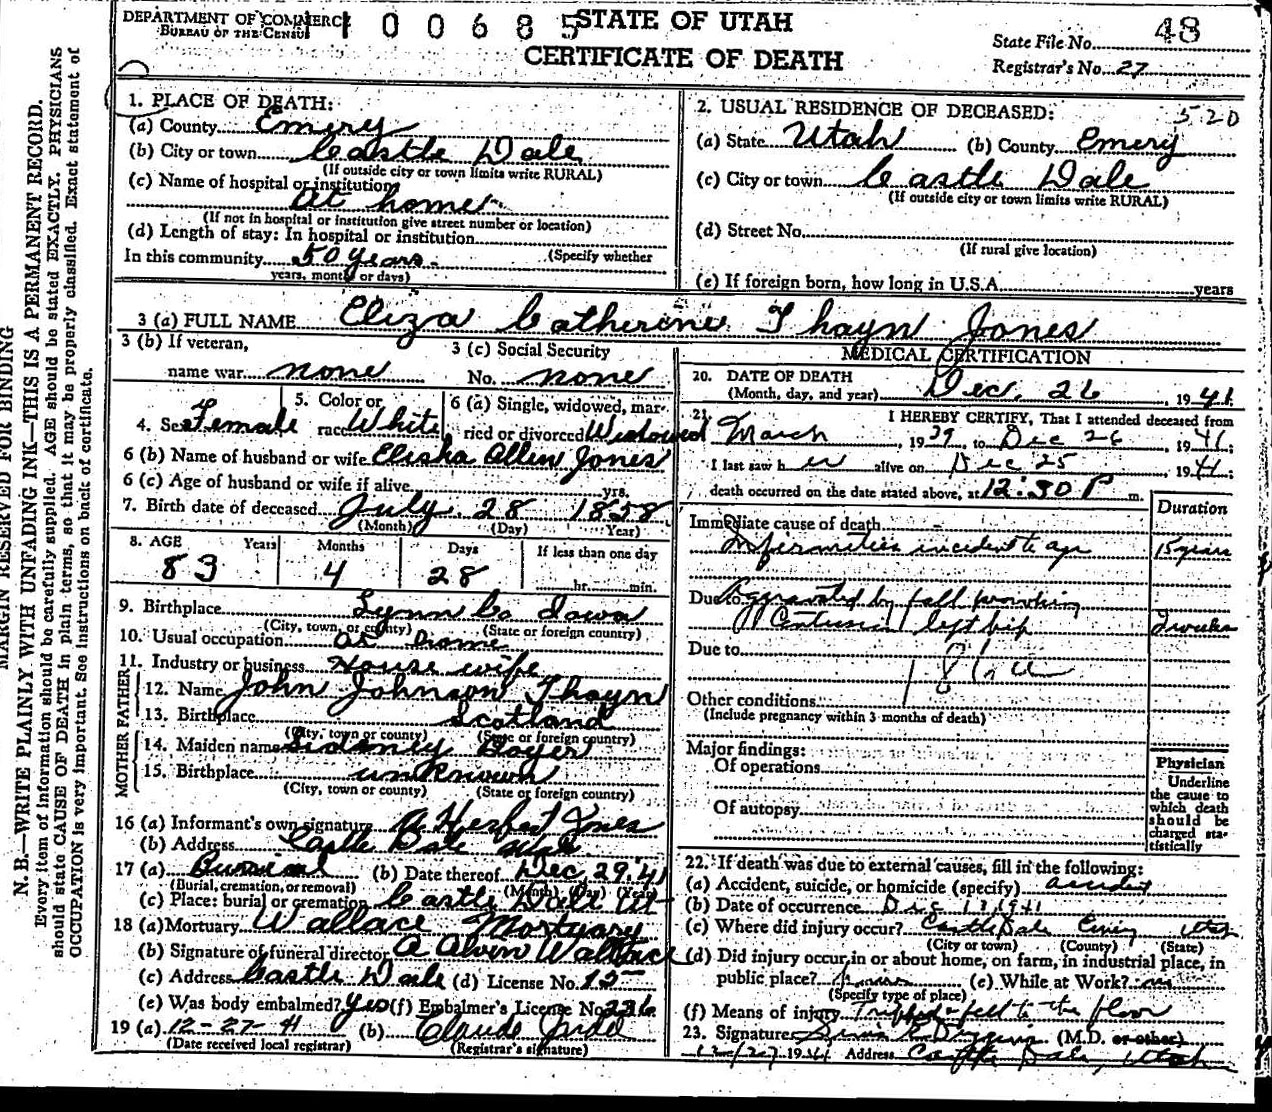 DEPARTMENT OF COMMERCE
BUREAU OF THE CENSUS
100685
STATE OF UTAH
CERTIFICATE OF DEATH
48
State File No.
Registrar's No. 27
MARGIN RESERVED FOR BINDING
N. B.—WRITE PLAINLY WITH UNFADING INK—THIS IS A PERMANENT RECORD.
Every item of information should be carefully supplied. AGE should be stated EXACTLY. PHYSICIANS
should state CAUSE OF DEATH in plain terms, so that it may be properly classified. Exact statement of
OCCUPATION is very important. See instructions on back of certificate.
1. PLACE OF DEATH:
(a) County Emery
(b) City or town Castle Dale
(If outside city or town limits write RURAL)
(c) Name of hospital or institution
At home
(If not in hospital or institution give street number or location)
(d) Length of stay: In hospital or institution
In this community 50 years. (Specify whether
years, months or days)
2. USUAL RESIDENCE OF DECEASED: 520
(a) State Utah (b) County Emery
(c) City or town Castle Dale
(If outside city or town limits write RURAL)
(d) Street No.
(If rural give location)
(e) If foreign born, how long in U.S.A. years
3 (a) FULL NAME Eliza Catherine Thayn Jones
3 (b) If veteran,
name war none
3 (c) Social Security
No. none
4. Sex Female
5. Color or
race White
6 (a) Single, widowed, mar-
ried or divorced Widowed
6 (b) Name of husband or wife Elisha Allen Jones
6 (c) Age of husband or wife if alive yrs.
7. Birth date of deceased July 28 1858
(Month) (Day) Year)
8. AGE Years Months Days If less than one day
83 4 28 hr. min.
9. Birthplace Lynn Co Iowa
(City, town, or county) (State or foreign country)
10. Usual occupation at Home
11. Industry or business House wife
FATHER
12. Name John Johnson Thayn
13. Birthplace Scotland
(City, town or county) (State or foreign country)
MOTHER
14. Maiden name Sidney
15. Birthplace unknown
(City, town or county) (State or foreign country)
16 (a) Informant's own signature A Herbert Jones
(b) Address Castle Dale Utah
17 (a) Burrial (b) Date thereof Dec 29. 41
(Burial, cremation, or removal) (Month) (Day) (Year)
(c) Place: burial or cremation Castle Dale Ut
18 (a) Mortuary Wallace Mortuary
(b) Signature of funeral director A Alvin Wallace
(c) Address Castle Dale (d) License No. 15
(e) Was body embalmed? yes (f) Embalmer's License No. 236
19 (a) 12-27-41 (b) Claude
(Date received local registrar) (Registrar's signature)
MEDICAL CERTIFICATION
20. DATE OF DEATH
(Month, day, and year) Dec. 26, 1941.
21. I HEREBY CERTIFY, That I attended deceased from
March, 1939, to Dec 26, 1941;
I last saw her alive on Dec 25, 1941;
death occurred on the date stated above, at 12:30 P m.
Duration
Immediate cause of death
Infirmities incident to age 15 years
Due to Aggravated by fall
Contusion left hip 2 weeks
Due to
Other conditions
(Include pregnancy within 3 months of death)
Major findings:
Of operations
Of autopsy
Physician
Underline
the cause to
which death
should be
charged sta-
tistically
22. If death was due to external causes, fill in the following:
(a) Accident, suicide, or homicide (specify) accident
(b) Date of occurrence Dec 13 1941
(c) Where did injury occur? Castle Dale Emery Utah
(City or town) (County) (State)
(d) Did injury occur in or about home, on farm, in industrial place, in
public place? (e) While at Work? no
(Specify type of place)
(f) Means of injury Tripped & fell to the floor
23. Signature (M.D. or other)
12/27 1941 Address Castle Dale, Utah